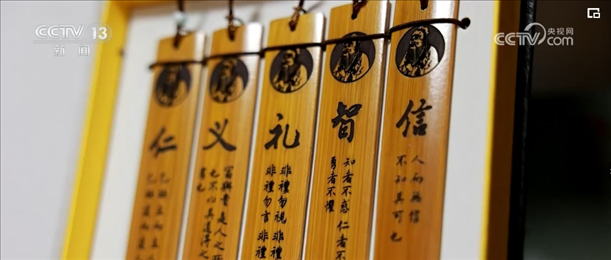 CCTV 13
新闻
CCTV.com
央视网
仁
义
富與貴是人之所
也不以其道得之
處也
礼
非禮勿視非禮
非禮勿言非禮
智
知者不惑仁者不
勇者不懼
信
人而無信
不知其可也